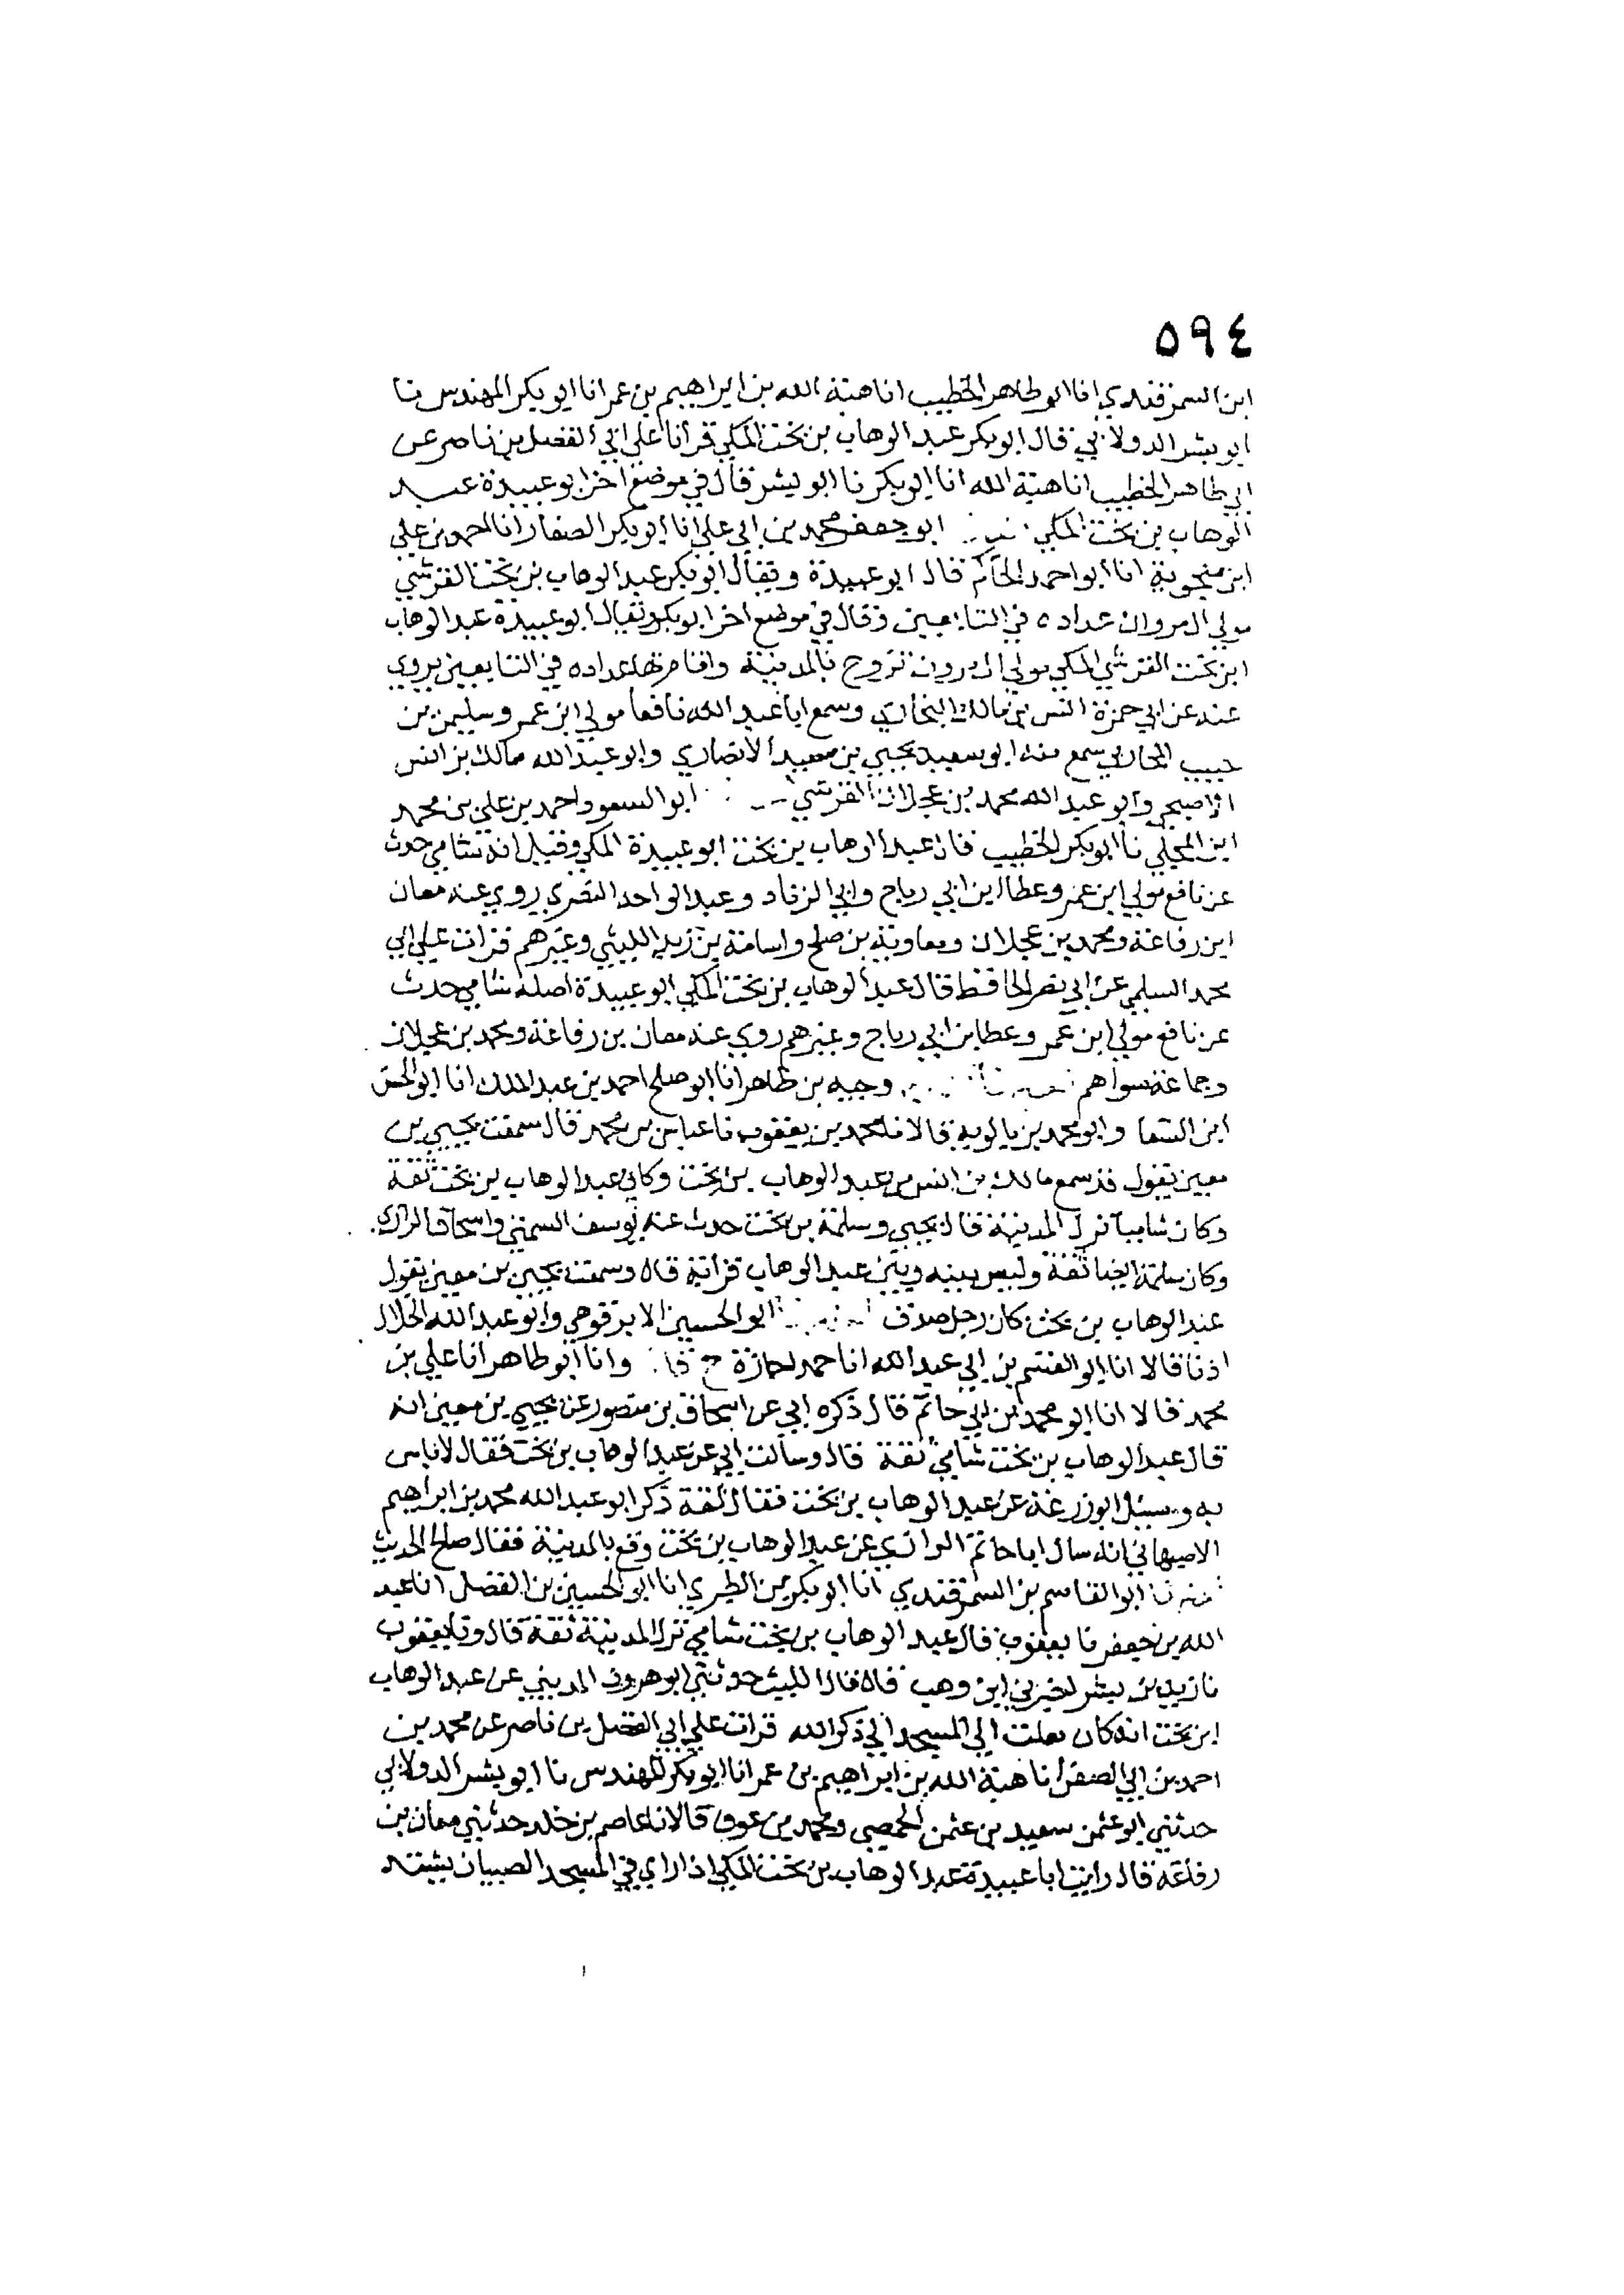 ٥٩٤
ابن السمرقندي انا ابو طاهر الخطيب انا هبة الله بن ابراهيم بن عمر انا ابو بكر المهندس نا
ابو بشر الدولابي قال ابو بكر عبد الوهاب بن بخت المكي قرانا علي ابي الفضل بن ناصر عن
ابي طاهر الخطيب انا هبة الله انا ابو بكر نا ابو بشر قال في موضع اخر ابو عبيدة عبد
الوهاب بن بخت المكي ابو جعفر محمد بن ابي علي انا ابو بكر الصفار انا احمد بن علي
ابن منجوية انا ابو احمد الحاكم قال ابو عبيدة ويقال ابو بكر عبد الوهاب بن بخت القرشي
مولي ال مروان عداده في التابعين وقال في موضع اخر ابو بكر ويقال ابو عبيدة عبد الوهاب
ابن بخت القرشي المكي مولي ال مرون تزوج بالمدينة واقام بها عداده في التابعين يروي
عنه عن ابي حمزة انس بن مالك البخاري وسمع ابا عبد الله نافعا مولي ابن عمر وسليمن بن
حبيب المحاربي سمع منه ابو سعيد يحيي بن سعيد الانصاري وابو عبد الله مالك بن انس
الاصبحي وابو عبد الله محمد بن عجلان القرشي ابو السعود احمد بن علي بن محمد
ابن المجلي نا ابو بكر الخطيب قال عبد الوهاب بن بخت ابو عبيدة المكي وقيل انه شامي حدث
عن نافع مولي ابن عمر وعطا ابن ابي رباح وابي الزناد وعبد الواحد النصري روي عنه معان
ابن رفاعة ومحمد بن عجلان ومعاوية بن صلح واسامة بن زيد الليثي وغيرهم قرات علي ابي
محمد السلمي عن ابي نصر الحافظ قال عبد الوهاب بن بخت المكي ابو عبيدة اصله شامي حدث
عن نافع مولي ابن عمر وعطا بن ابي رباح وغيرهم روي عنه معان بن رفاعة ومحمد بن عجلان
وجماعة سواهم وجيه بن طاهر انا ابو صلح احمد بن عبد الملك انا ابو الحسن
ابن السقا وابو محمد بن بالوية قالا نا محمد بن يعقوب نا عباس بن محمد قال سمعت يحيي بن
معين يقول قد سمع مالك بن انس من عبد الوهاب بن بخت وكان عبد الوهاب بن بخت ثقة
وكان شاميا نزل المدينة قال يحيي وسلمة بن بخت حدث عنه يوسف السمتي واسحاق الرازي
وكان سلمة ايضا ثقة وليس بينه وبين عبد الوهاب قرابة قال وسمعت يحيي بن معين يقول
عبد الوهاب بن بخت كان رجل صدق ابو الحسين الابرقوهي وابو عبد الله الخلال
اذنا قالا انا ابو القسم بن ابي عبد الله انا حمد اجازة ح قال وانا ابو طاهر انا علي بن
محمد قالا انا ابو محمد ابن ابي حاتم قال ذكره ابي عن اسحاق بن منصور عن يحيي بن معين انه
قال عبد الوهاب بن بخت شامي ثقة قال وسالت ابي عن عبد الوهاب بن بخت فقال لا باس
به وسيل ابو زرعة عن عبد الوهاب بن بخت فقال ثقة ذكر ابو عبد الله محمد بن ابراهيم
الاصبهاني انه سال ابا حاتم الرازي عن عبد الوهاب بن بخت وقع بالمدينة فقال صلح الحديث
ابو القاسم بن السمرقندي انا ابو بكر بن الطبري انا ابو الحسين بن الفضل انا عبد
الله بن جعفر نا يعقوب قال عبد الوهاب بن بخت شامي نزل المدينة ثقة قال ونا يعقوب
نا زيد بن بشر اخبرني ابن وهب قال قال الليث حدثني ابو هرون المديني عن عبد الوهاب
ابن بخت انه كان يعلت الي المسجد الي ذكر الله قرات علي ابي الفضل بن ناصر عن محمد بن
احمد بن ابي الصقر انا هبة الله بن ابراهيم بن عمر انا ابو بكر المهندس نا ابو بشر الدولابي
حدثني ابو عثمن سعيد بن عثمن الحمصي ومحمد بن عوف قالا نا عاصم بن خلد حدثني معان بن
رفاعة قال رايت ابا عبيدة عبد الوهاب بن بخت المكي اذا راي في المسجد الصبيان يشتد